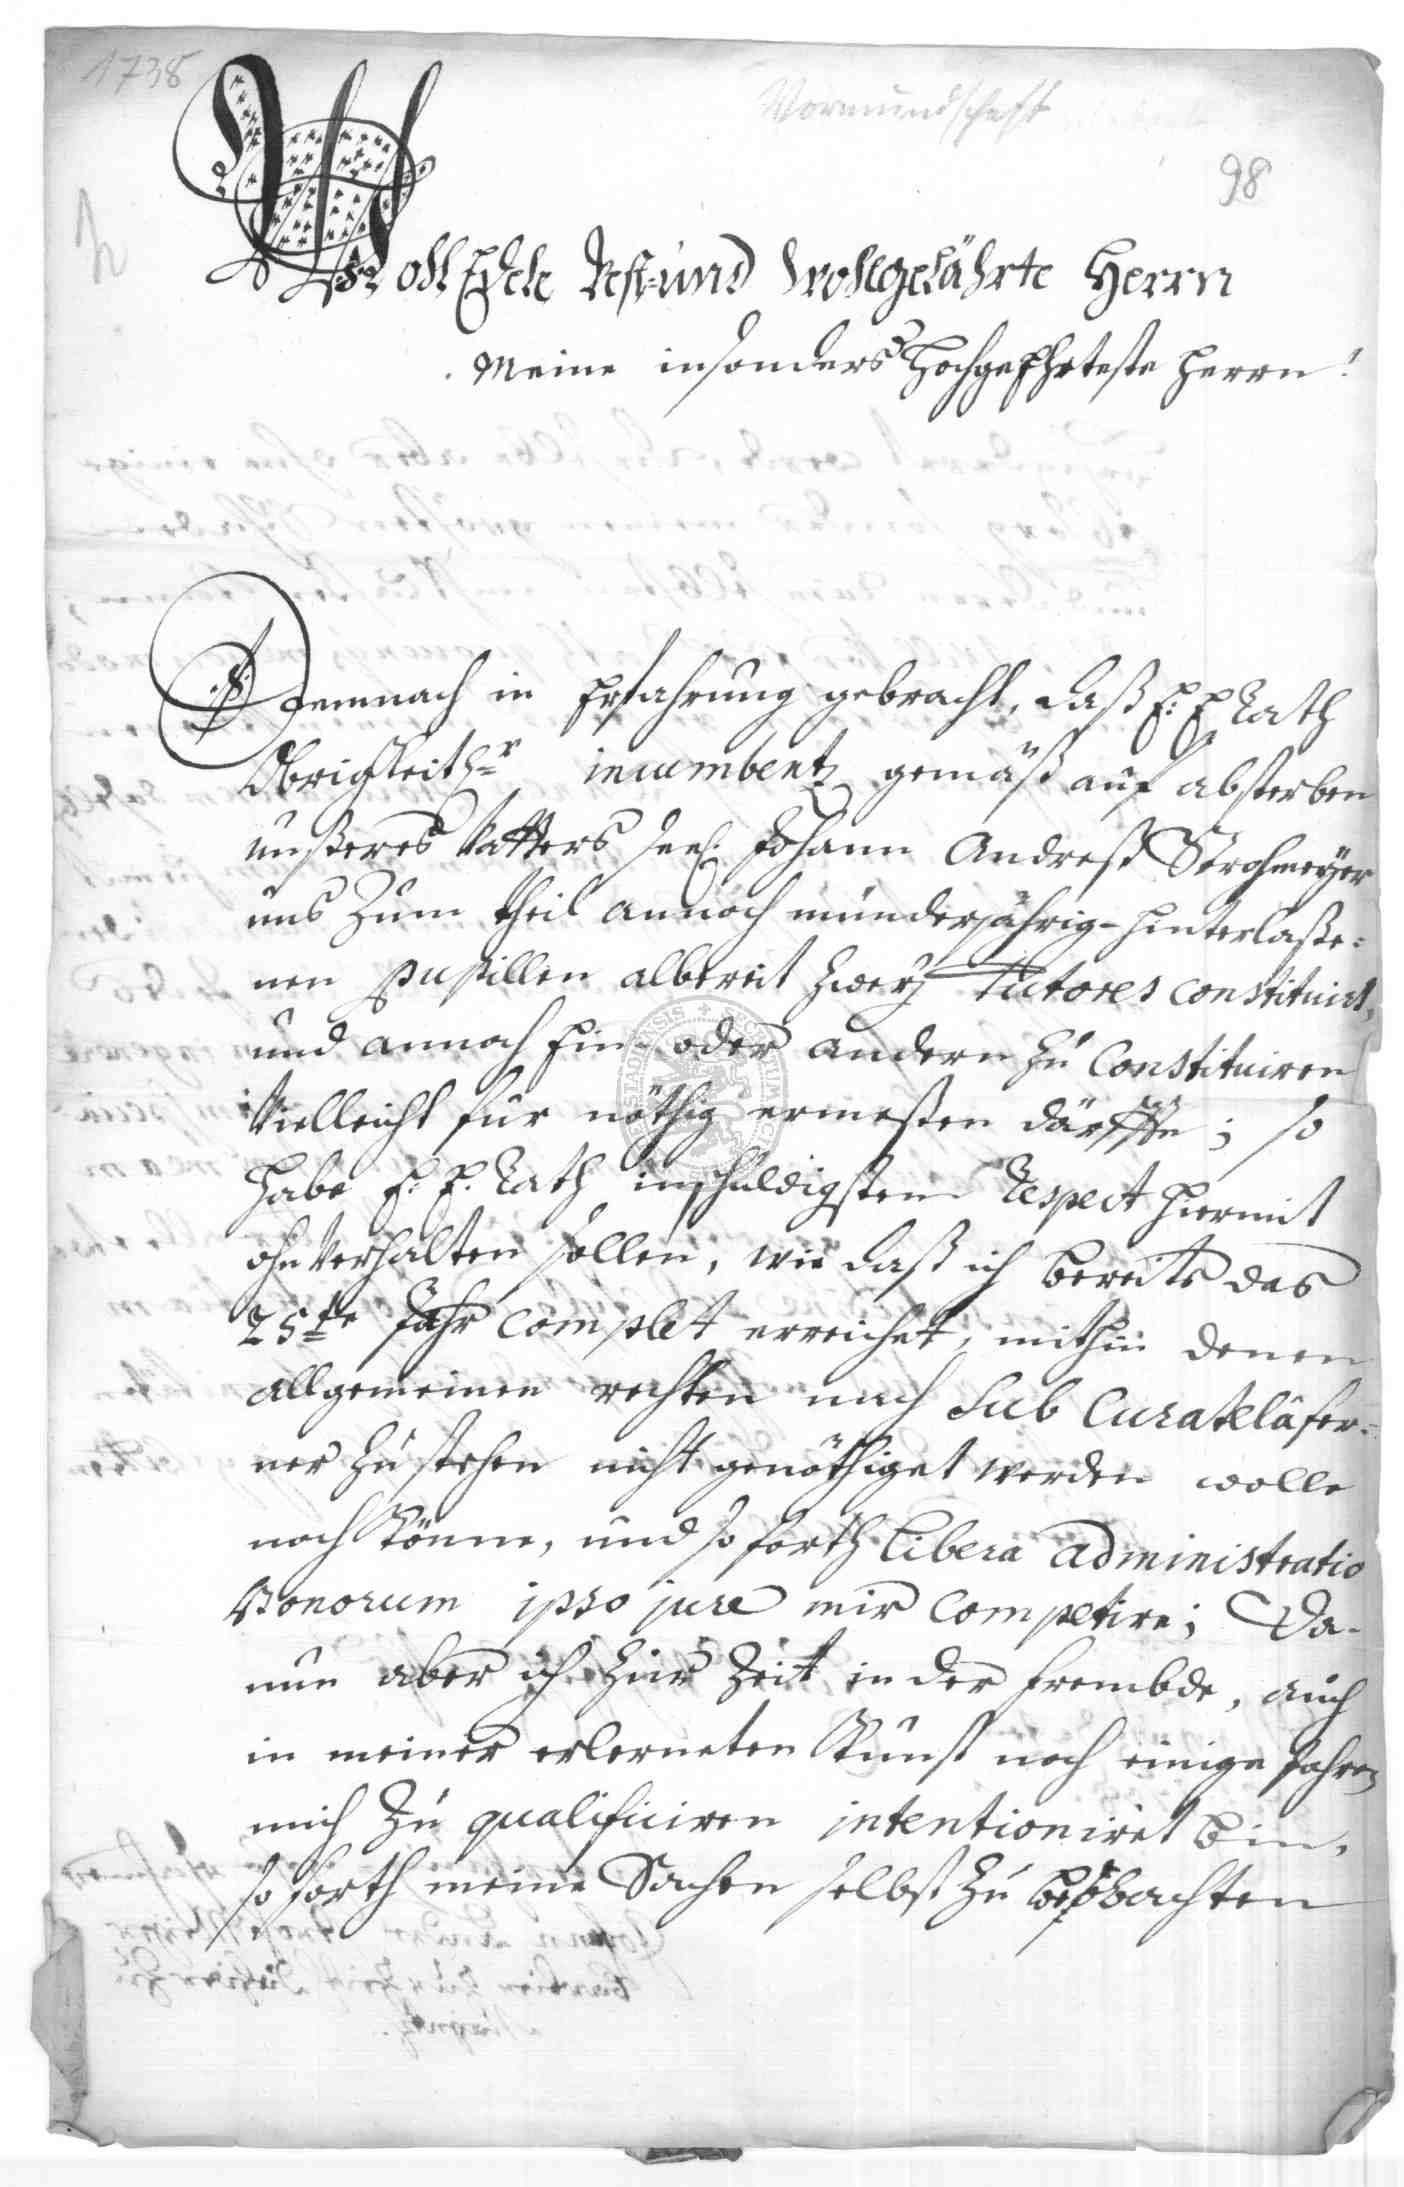 1738
Vormundschaft
98
Woll Edele Vest- und Wohlgelährte Herrn
Meine insonders Hochgeehrteste Herrn!
Demnach in Erfahrung gebracht, daß E: E. Rath
Obrigkeitl:r incumbentz gemäß auf absterben
unßeres Vatters seel: Johann Andreß Strohmeyer
uns Zum theil annoch münderjährig-hinterlaße=
nen Pupillen albereit zwey Tutores constituirt,
und annoch Ein- oder andern zu Constituiren
Vielleicht für nöthig ermeßen därffte; so
habe E: E. Rath in schuldigstem Respect hiermit
ohnverhalten sollen, wie daß ich bereits das
25te Jahr complet erreichet, mithin denen
allgemeinen rechten nach sub Curatelâ fer=
ner zu stehen nicht genöthiget werden wolle
noch könne, und so forth libera administratio
Bonorum ipso jure mir competire; Da-
nun aber ich zur Zeit in der frembde, auch
in meiner erlerneten Kunst noch einige Jahren
mich Zu qualificiren intentioniret bin,
so forth meine Sachen selbst zu beobachten